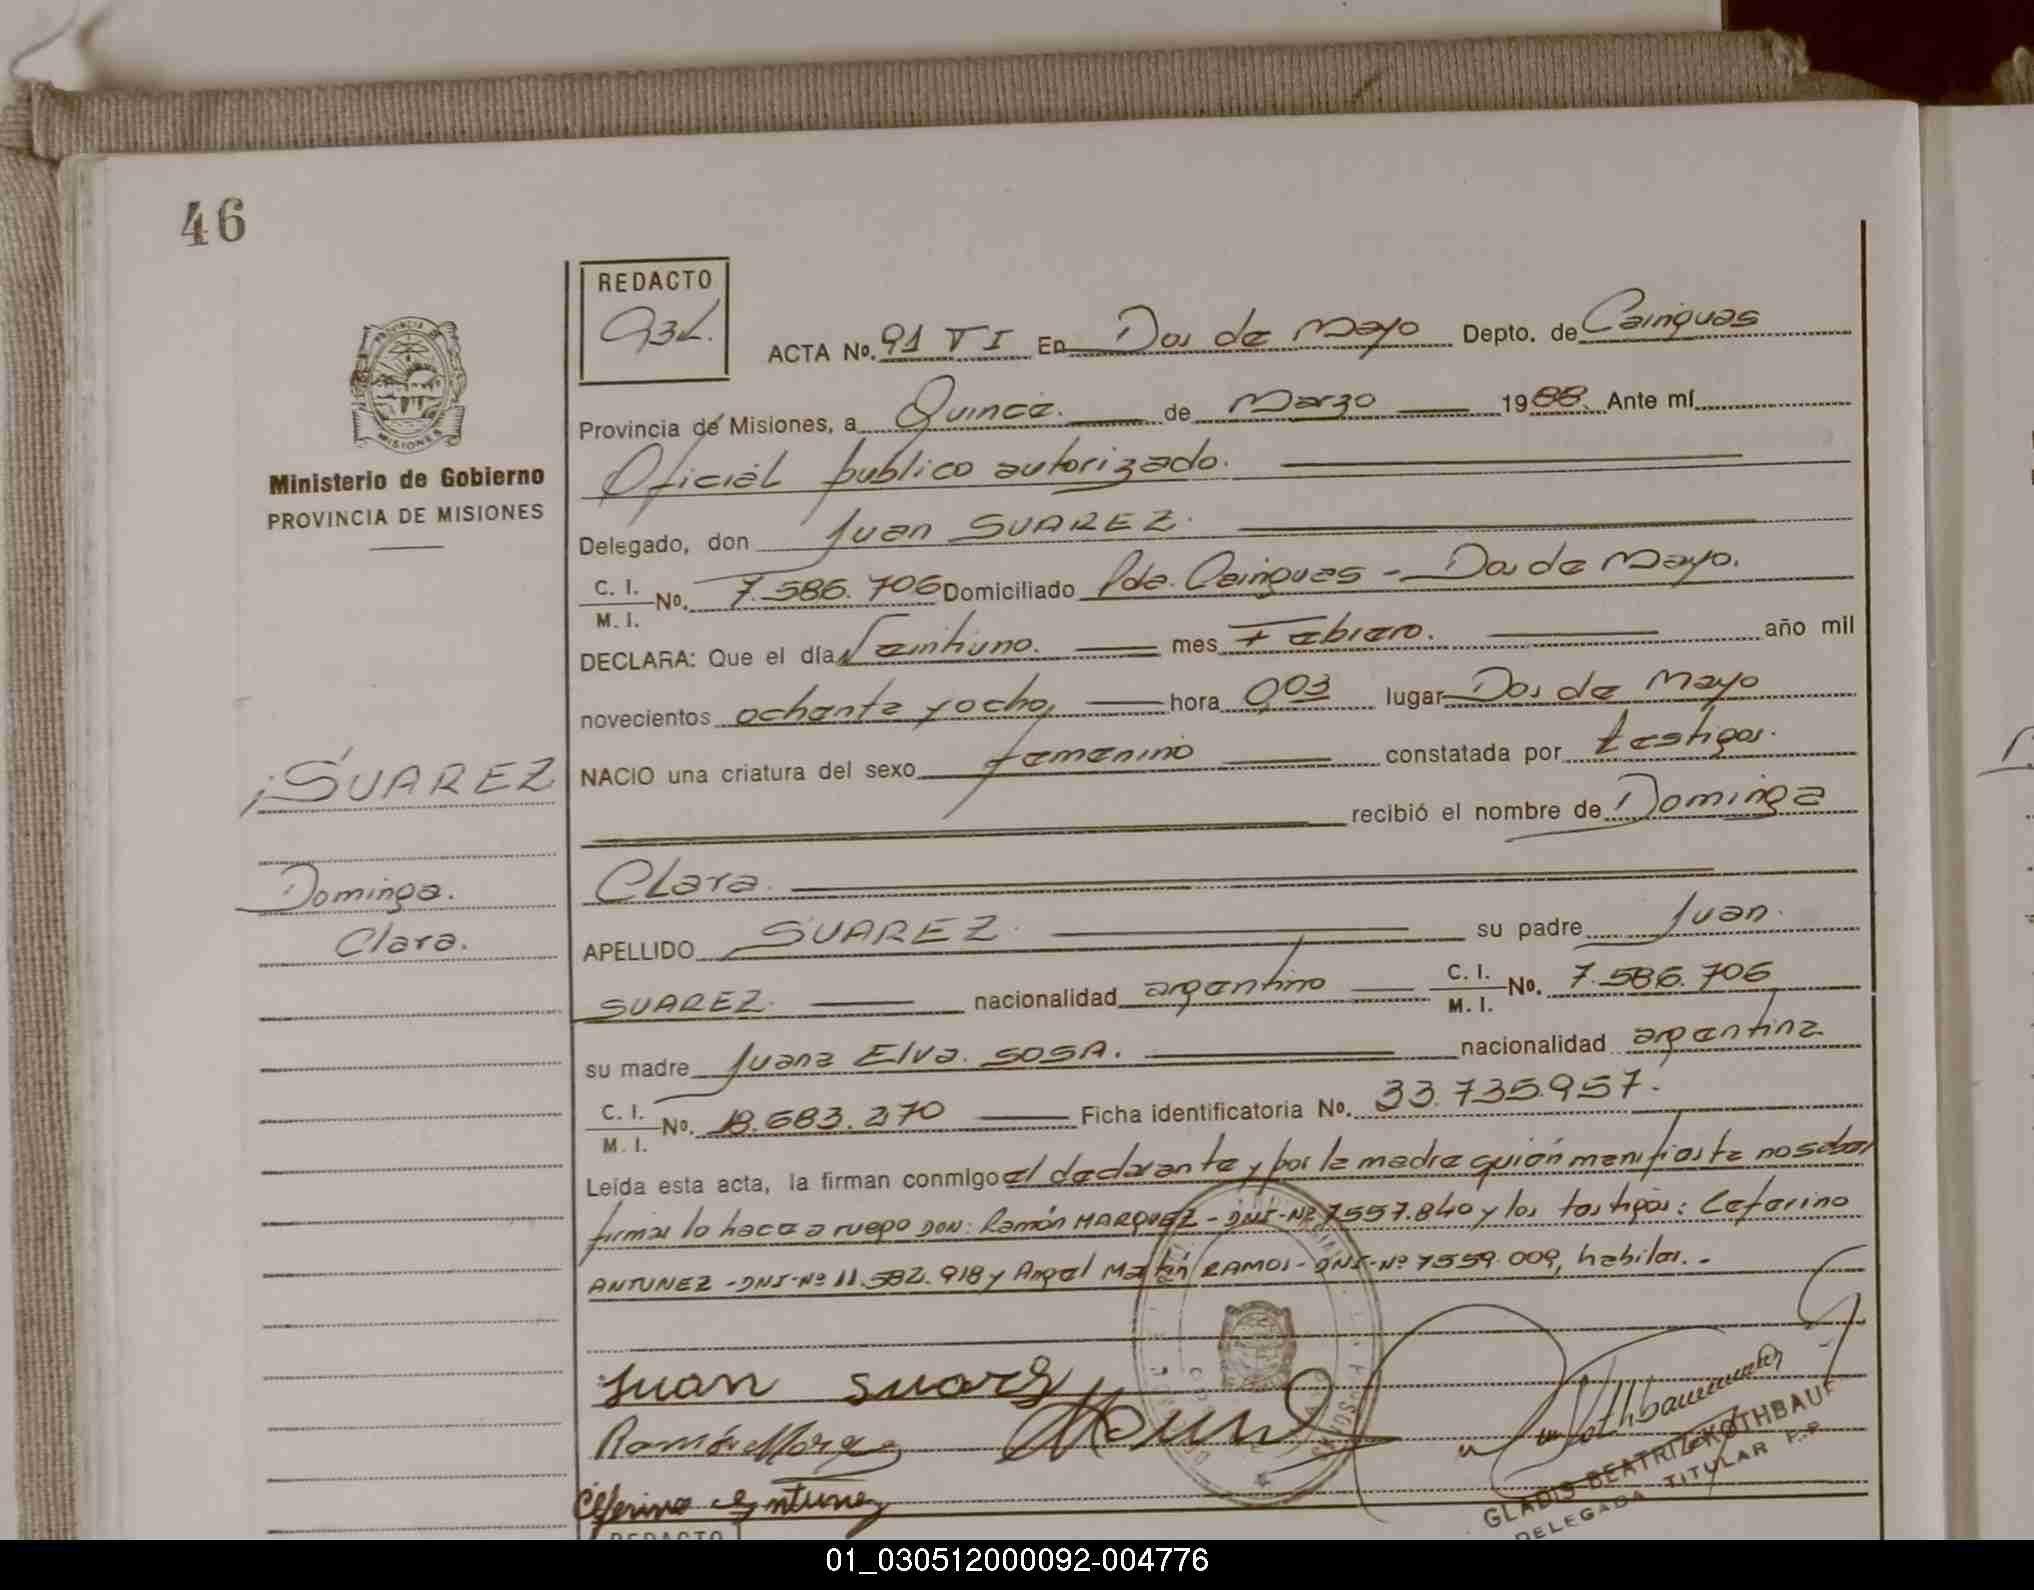 46
REDACTO
ACTA No. 91 T I En Dos de Mayo Depto. de Cainguas
Provincia de Misiones, a Quince. de Marzo 1988. Ante mí
Oficial publico autorizado.
Delegado, don Juan SUAREZ.
C. I.
M. I.
No. 7.586.706 Domiciliado Pde. Cainguas - Dos de Mayo.
DECLARA: Que el día Veintiuno. mes Febrero. año mil
novecientos ochenta y ocho, hora 0,03 lugar Dos de Mayo
NACIO una criatura del sexo femenino constatada por testigos.
recibió el nombre de Dominga
Clara.
APELLIDO SUAREZ. su padre Juan.
SUAREZ. nacionalidad argentino C. I.
M. I.
No. 7.586.706
su madre Juana Elva. SOSA. nacionalidad argentina
C. I.
M. I.
No. 18.683.270 Ficha identificatoria No. 33.735.957.
Leída esta acta, la firman conmigo el declarante y por la madre quién manifiesta no saber
firmar lo hace a ruego DON: Ramón MARQUEZ - DNI-Nº 7557.840 y los testigos: Ceferino
ANTUNEZ - DNI-Nº 11.582.918 y Angel Martin RAMOS - DNI-Nº 7559.009, habiles. -
Juan Suarez
Ramón Marquez
Ceferino Antunez
GLADIS BEATRIZ KOTHBAUER
DELEGADA TITULAR P.P.
PROVINCIA DE
MISIONES
Ministerio de Gobierno
PROVINCIA DE MISIONES
SUAREZ
Dominga.
Clara.
REDACTO
01_030512000092-004776